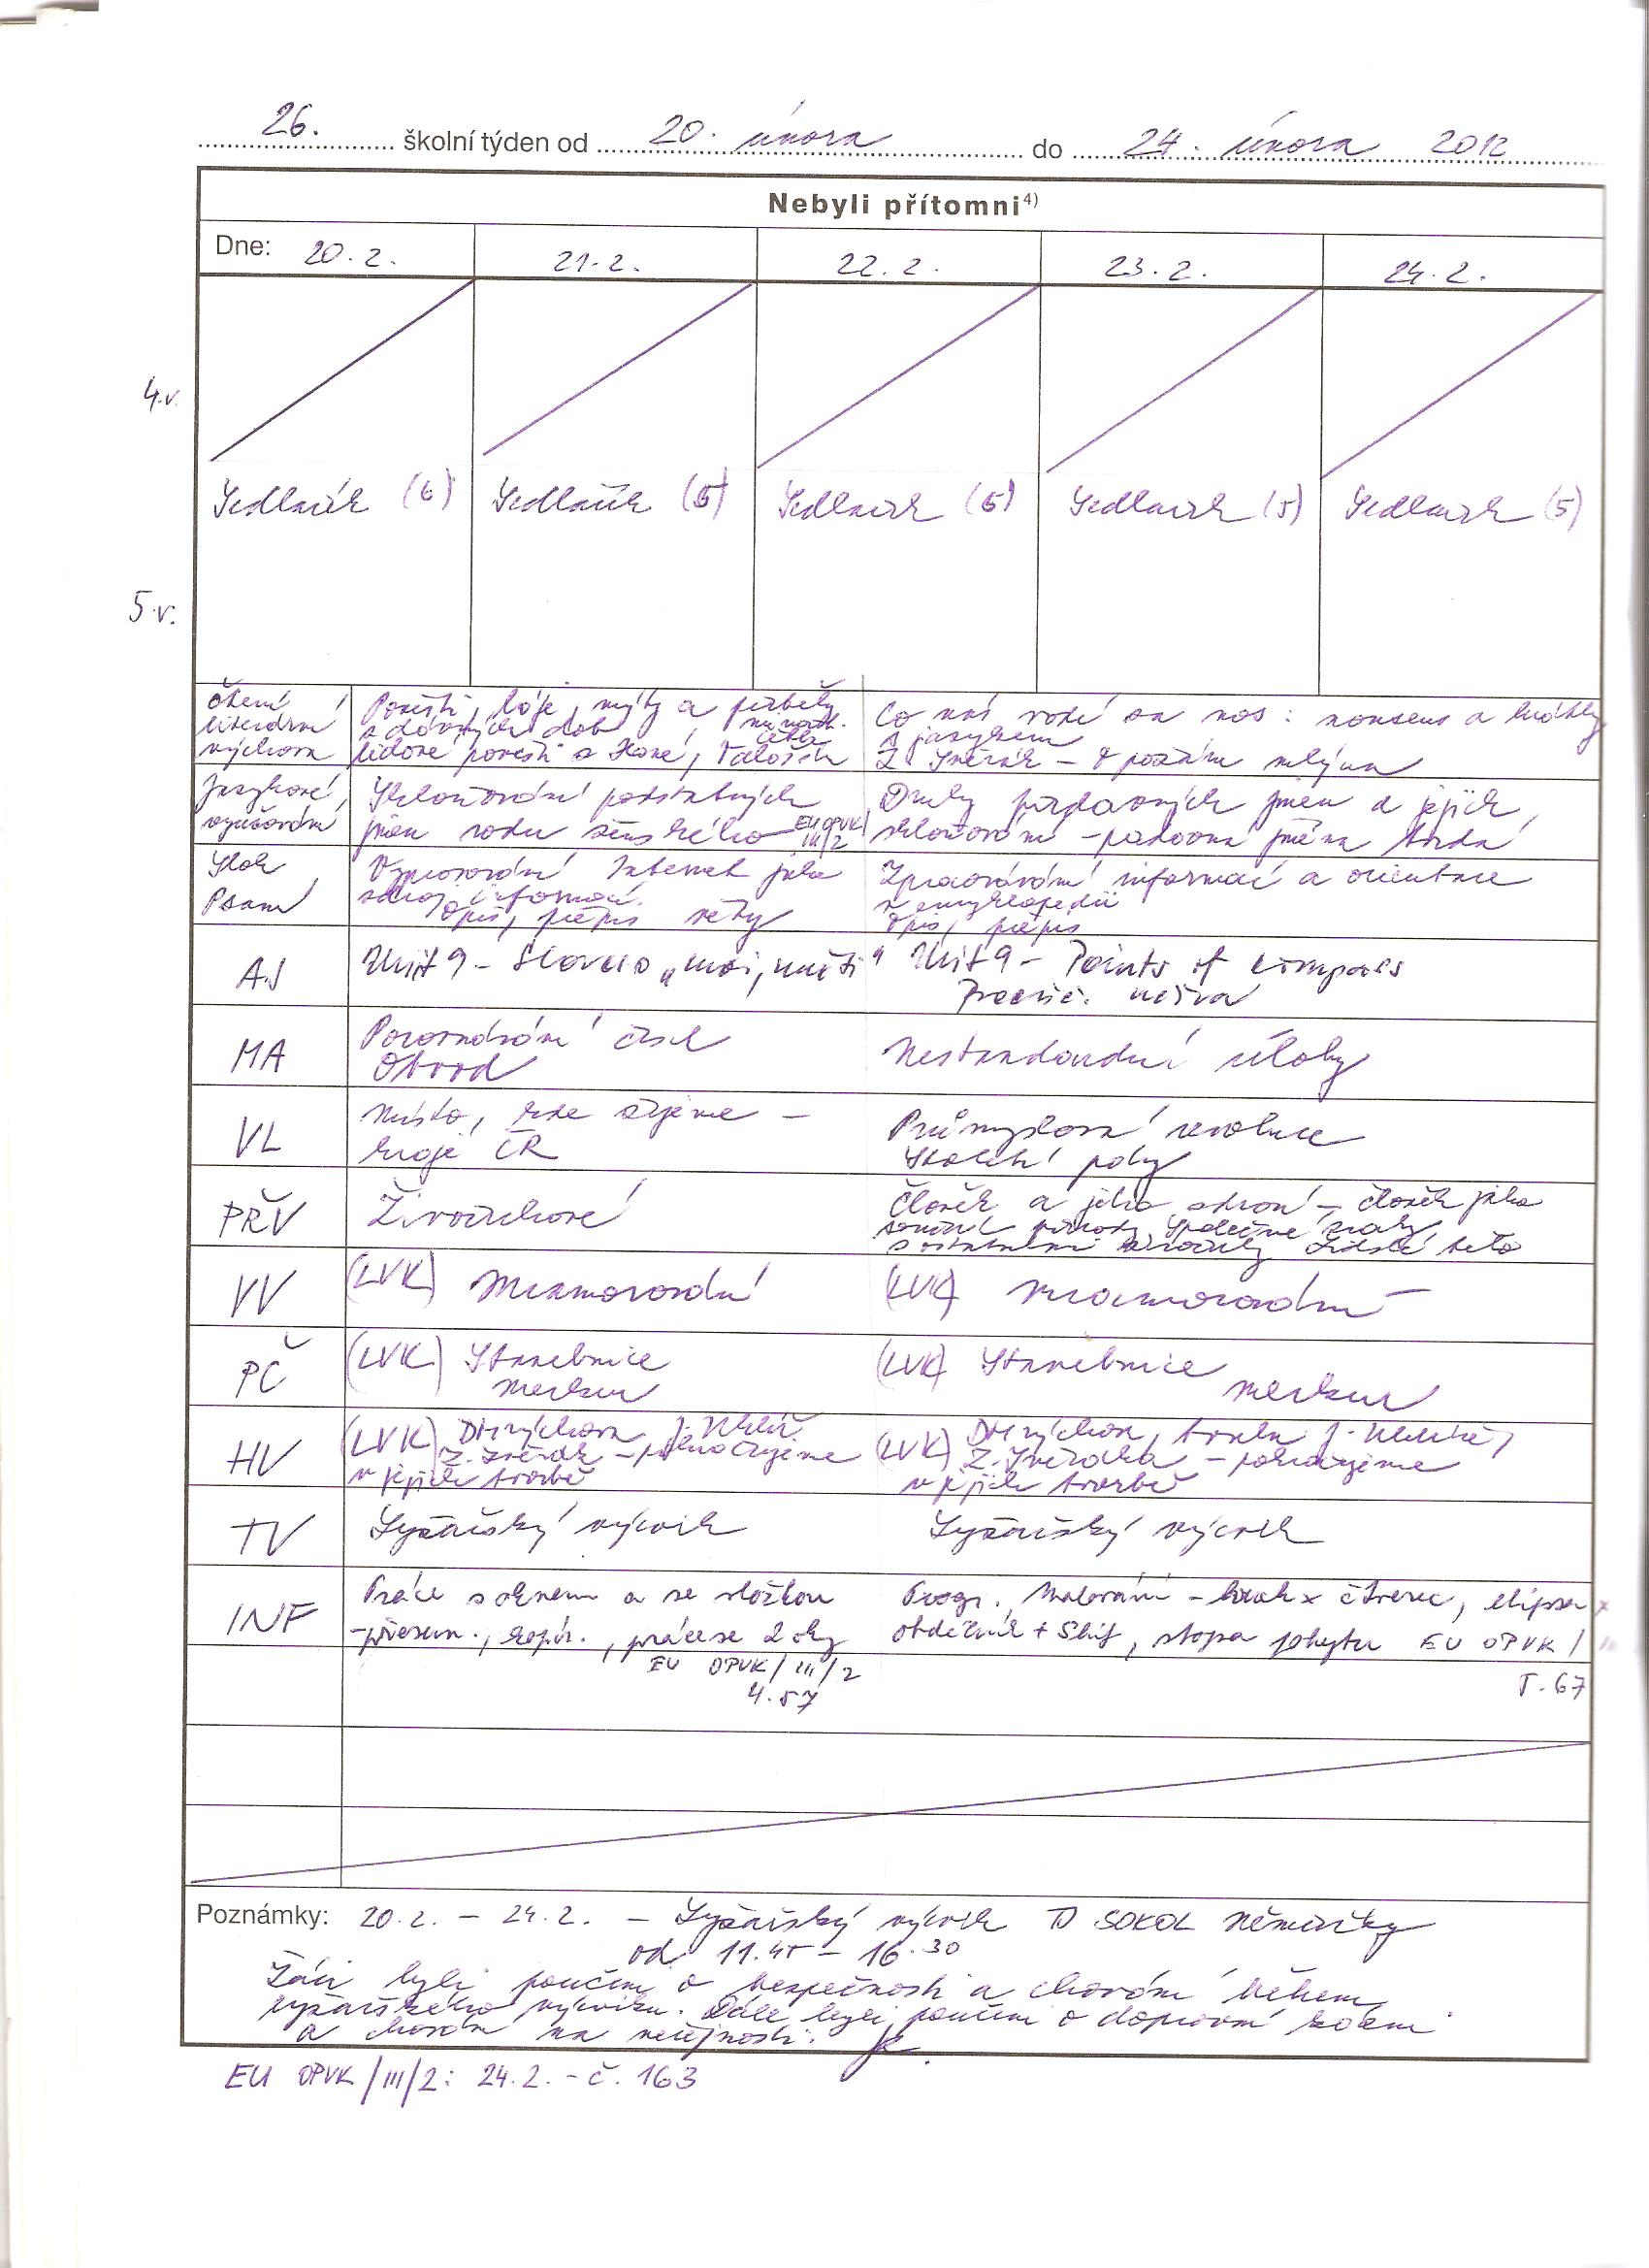 26. školní týden od 20. února do 24. února 2012
Nebyli přítomni4)
Dne: 20.2. 21.2. 22.2. 23.2. 24.2.
4.r.
Sedláček (6) Sedláček (5) Sedláček (5) Sedláček (5) Sedláček (5)
5.r.
Čtení Pověsti, báje, mýty a příběhy
literární z dávných dob
výchova lidové pověsti
Co nás vodí za nos: nonsens a hrátky
s jazykem
Z. Svěrák - O požáru mlýna
Jazykové Skloňování podstatných
vyučování jmen rodu ženského EU OPVK/III/2
Druhy přídavných jmen a jejich
skloňování - přídavná jména tvrdá
Sloh Vypracování Internet jako
zdroj informací.
Psaní Opis, přepis věty
Zpracování informací a orientace
v encyklopedii
Opis, přepis
AJ Unit 9 - Sloveso „moci, umět"
Unit 9 - Points of compass
MA Porovnávání čísel
Obvod
Nestandardní úlohy
VL Místo, kde žijeme -
kraje ČR
Průmyslová revoluce
Století páry
PŘV Živočichové
Člověk a jeho zdraví - člověk jako
součást přírody Společné znaky
s ostatními živočichy Lidské tělo
VV (LVK) Mezinárodní (LVK) Mezinárodní
PČ (LVK) Stavebnice
Merkur
(LVK) Stavebnice
Merkur
HV (LVK) J. Uhlíř
Z. Svěrák - pokračujeme
v jejich tvorbě
(LVK) tvorba J. Uhlíře,
Z. Svěráka - pokračujeme
v jejich tvorbě
TV Lyžařský výcvik Lyžařský výcvik
INF Práce s oknem a se složkou
- přesun., kopír., práce se 2 okny
EU OPVK/III/2
4.57
Progr. Malování - kruh x čtverec, elipsa x
obdélník + Shift, stopa pohybu EU OPVK/
5.67
Poznámky: 20.2. - 24.2. - Lyžařský výcvik TJ SOKOL Němčičky
od 11.45 - 16.30
Žáci byli poučeni o bezpečnosti a chování během
lyžařského výcviku. Dále byli poučeni o dopravní kázni
a chování na veřejnosti.
EU OPVK/III/2: 24.2. - č. 163